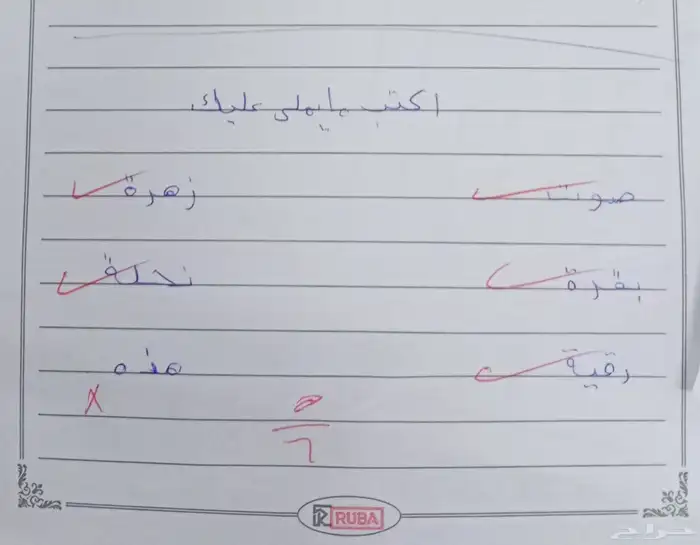 اكتب مايملى عليك
صوت زهرة
بقرة نحلة
رقية هذه
٥
٦
RUBA
حراج